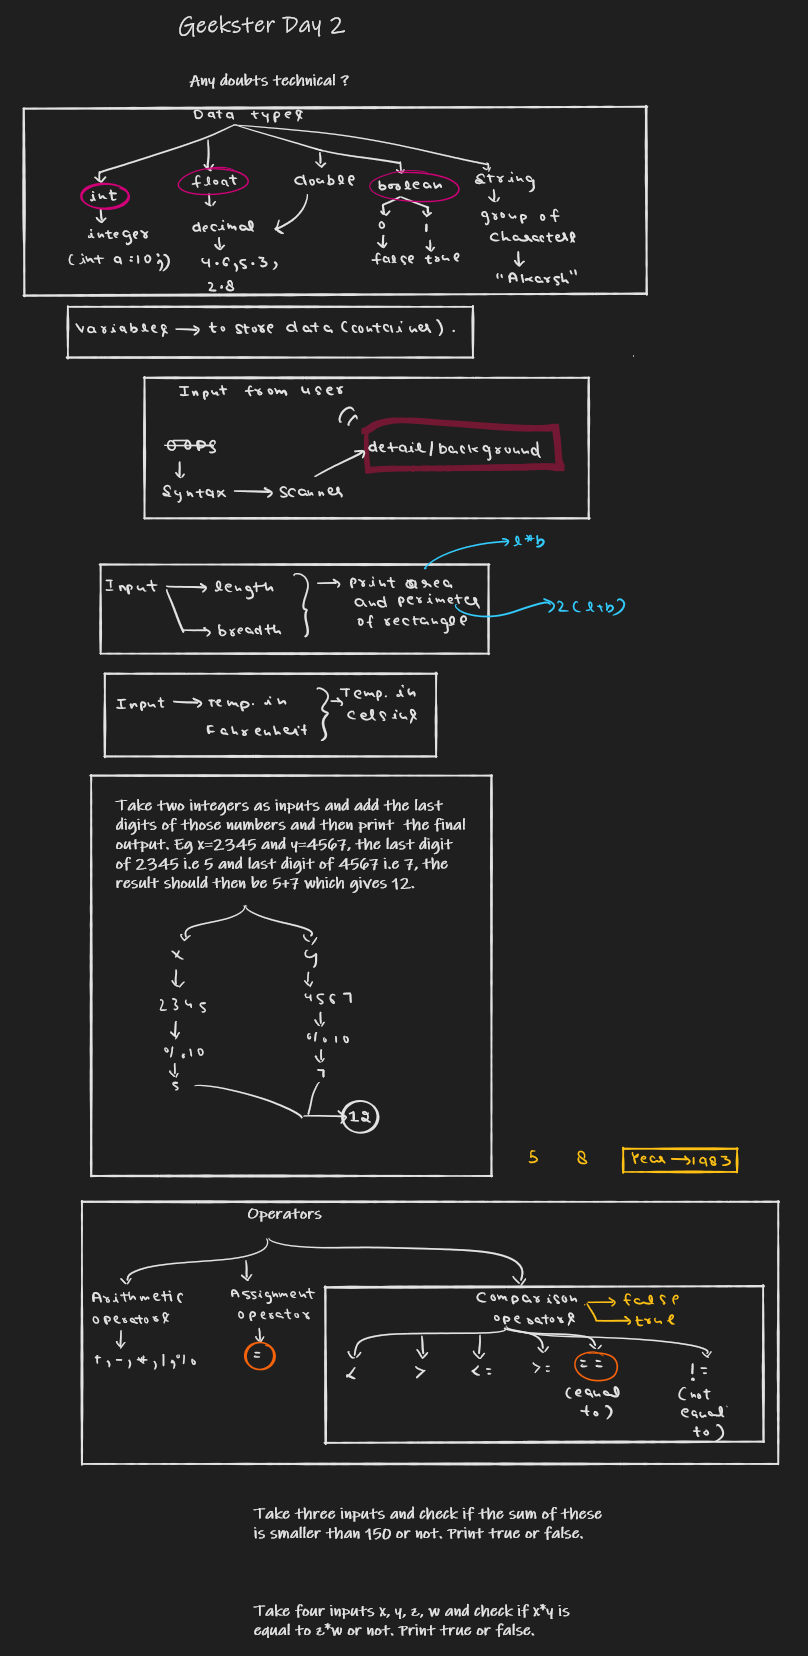 Geekster Day 2
Any doubts technical ?
Data types
int
float
double
boolean
string
integer
(int a=10;)
decimal
4.6,5.3,
2.8
0
1
false true
group of
characters
"Akarsh"
variables → to store data (container).
Input from user
OOPS
Syntax → scanner
detail/background
Input → length
breadth
→ print area
and perimeter
of rectangle
l*b
2(l+b)
Input → Temp. in
Fahrenheit
→ Temp. in
celsius
Take two integers as inputs and add the last
digits of those numbers and then print the final
output. Eg x=2345 and y=4567, the last digit
of 2345 i.e 5 and last digit of 4567 i.e 7, the
result should then be 5+7 which gives 12.
x
y
2345
4567
%10
%10
5
7
12
5 8 Year → 1983
Operators
Arithmetic
operators
+,-,*,/,%
Assignment
operator
=
Comparison
operators
false
true
<
>
<=
>=
==
(equal
to)
!=
(not
equal
to)
Take three inputs and check if the sum of these
is smaller than 150 or not. Print true or false.
Take four inputs x, y, z, w and check if x*y is
equal to z*w or not. Print true or false.